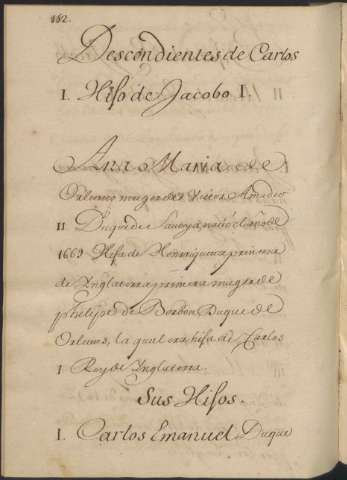 162.
Descondientes de Carlos
I. Hijo de Jacobo I.
Ana Maria de
Orleans muger de Victor Amadeo
II Duque de Savoya nació el año de
1669 Hija de Henriqueta princesa
de Inglaterra primera muger de
phelipe de Borbon Duque de
Orleans, la qual era hija de Carlos
I Rey de Inglaterra.
Sus Hijos.
I. Carlos Emanuel Duque